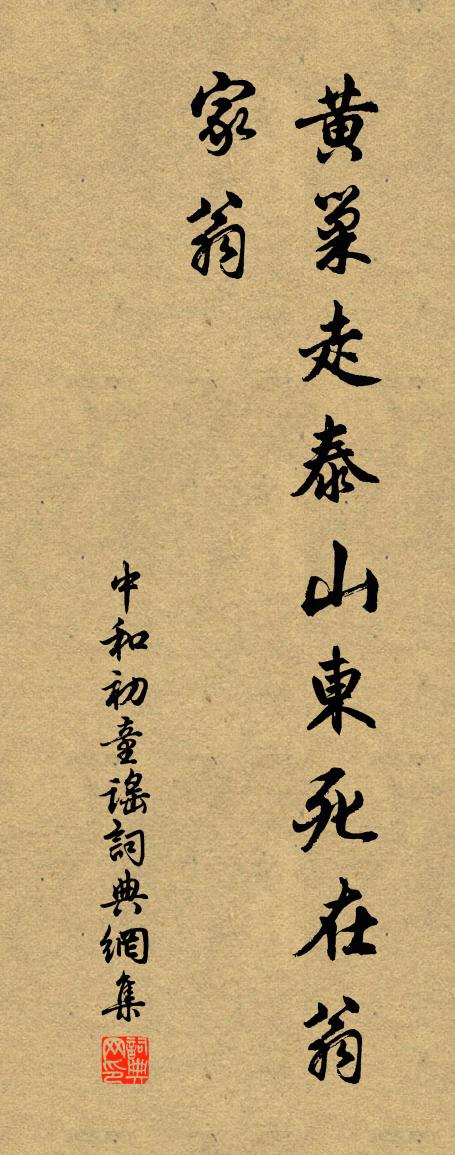 黄巢走泰山東死在翁
家翁
中和初童謠詞典網集
詞典网印